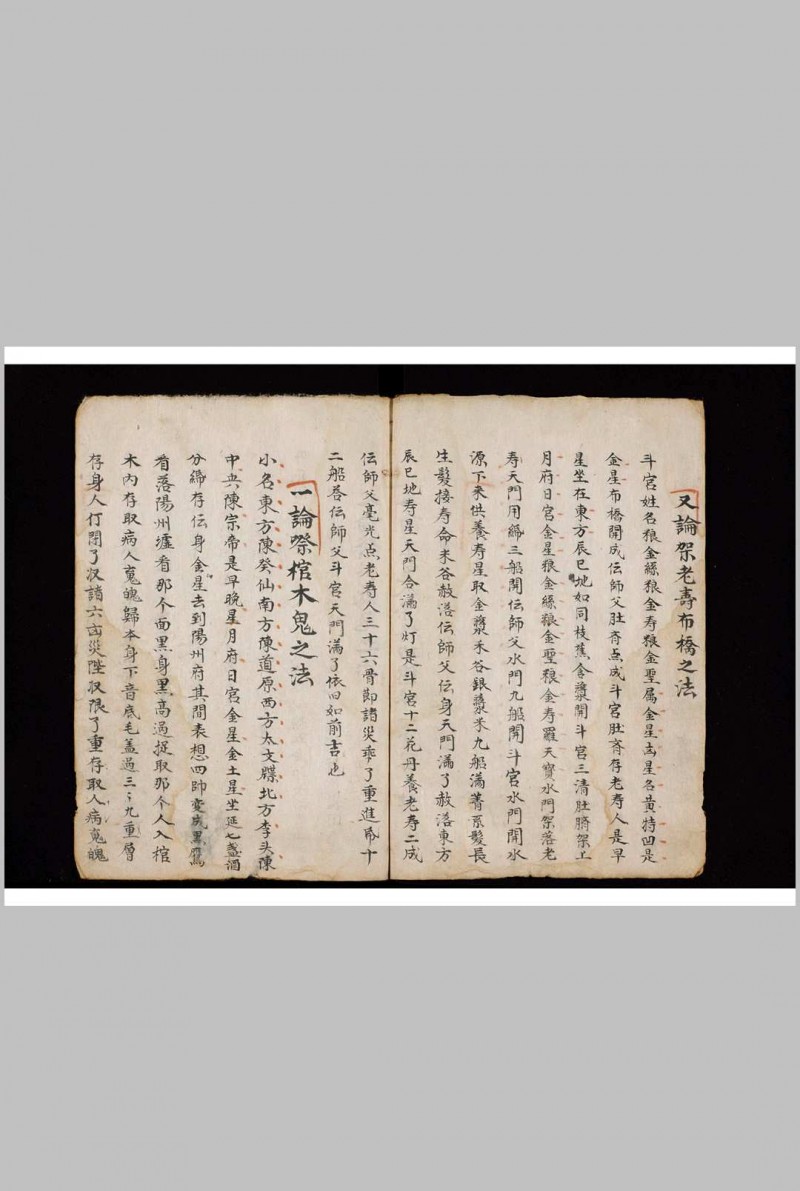 又論架老壽布橋之法
斗宮姓名粮金縧粮金寿粮金聖属金星卤星名黄特凹是
金星布橋開成伝師父肚斉点成斗宮肚斉存老寿人是早
星坐在東方辰巳地如同枝蕉含漿開斗宮三清肚臍架上
月府日宮金星粮金縧粮金聖粮金寿羅天寳水門架落老
寿天門用締三船開伝師父水門九船開斗宮水門開水
源下来供養寿星取金漿米谷銀漿米九船满菁系髮長
生髮接寿命米谷赦落伝師父伝身天門满了赦落東方
辰巳地寿星天門合满了灯是斗宮十二花丹養老寿二成
伝師父毫光点老寿人三十六骨節諸災乖了重進凧十
二船荅伝師父斗宮天門满了依旧如前吉也
一論祭棺木鬼之法
小名東方陳癸仙南方陳道原西方太文牒北方李头陳
中央陳宗帝是早晚星月府日宮金星金土星坐延七盞酒
分締存伝身金星去到陽州府其間表想四帥变成黒鷹
看落陽州墟看那个面黒身黒高過捉取那个人入棺
木内存取病人鬼魄歸本身下音底毛盖過三三九重層
存身人仃閉了汉諸六卤災陞収限了重存取人病鬼魄